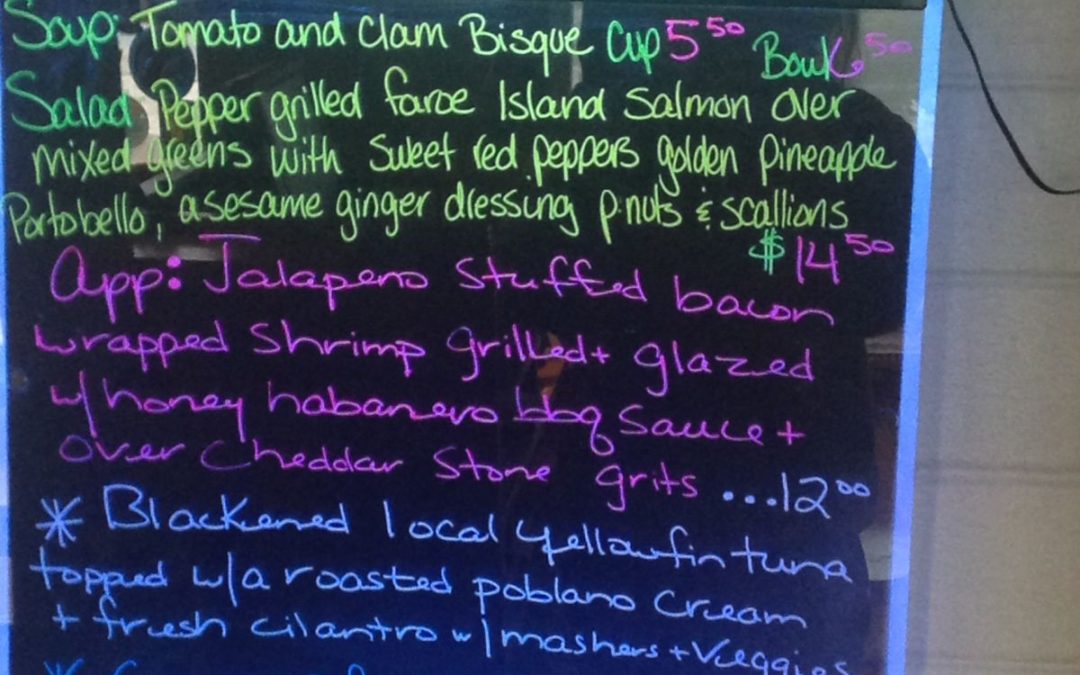 Soup: Tomato and Clam Bisque Cup 5 50 Bowl 6 50
Salad Pepper grilled faroe Island Salmon over
mixed greens with Sweet red peppers golden pineapple
Portobello, a sesame ginger dressing p.nuts & scallions
$14 50
App: Jalapeno Stuffed bacon
wrapped Shrimp grilled + glazed
w/ honey habanero bbq Sauce +
over Cheddar Stone grits ...12 00
* Blackened local yellowfin tuna
topped w/a roasted poblano Cream
+ fresh cilantro w/mashers + Veggies